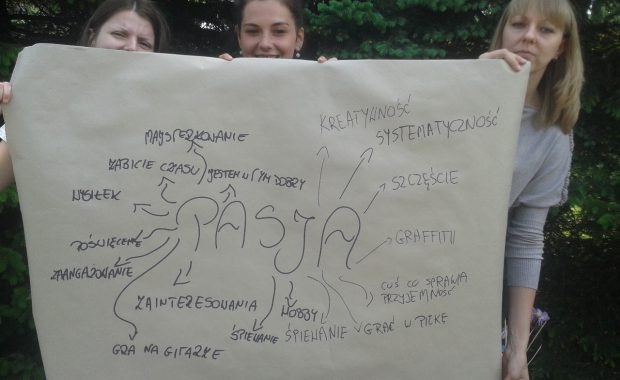 KREATYWNOŚĆ
SYSTEMATYCZNOŚĆ
MAJSTERKOWANIE
ZABICIE CZASU
JESTEM W TYM DOBRY
SZCZĘŚCIE
WYSIŁEK
PASJA
GRAFFITI
POŚWIĘCENIE
ZAANGAŻOWANIE
ZAINTERESOWANIA
HOBBY
CUŚ CO SPRAWIA
PRZYJEMNOŚĆ
ŚPIEWANIE
ŚPIEWANIE
GRAĆ W PIŁKĘ
GRA NA GITARZE